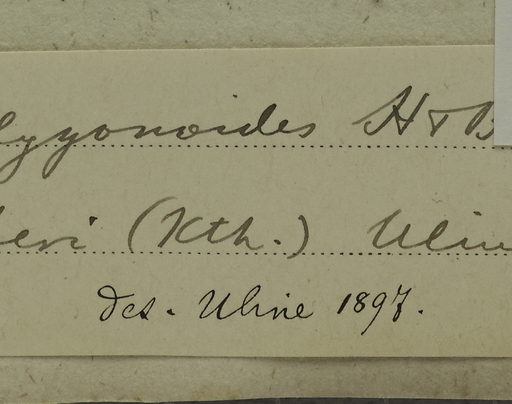 lygonoides H & B
eri (Kth.) Uline
det. Uline 1897.